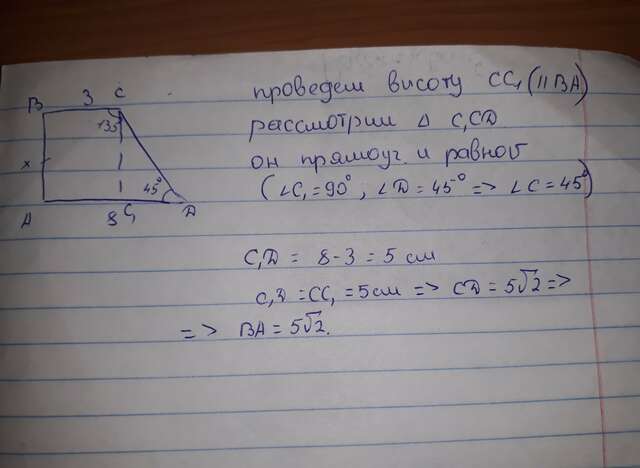 B 3 C
135
x
45°
A 8 C₁ D
проведем высоту CC₁ (||BA)
рассмотрим Δ C₁CD
он прямоуг. и равноб
(∠C₁=90°; ∠D=45° => ∠C=45°)
C₁D = 8-3 = 5 см
C₁D = CC₁ = 5 см => CD = 5√2 =>
=> BA = 5√2.